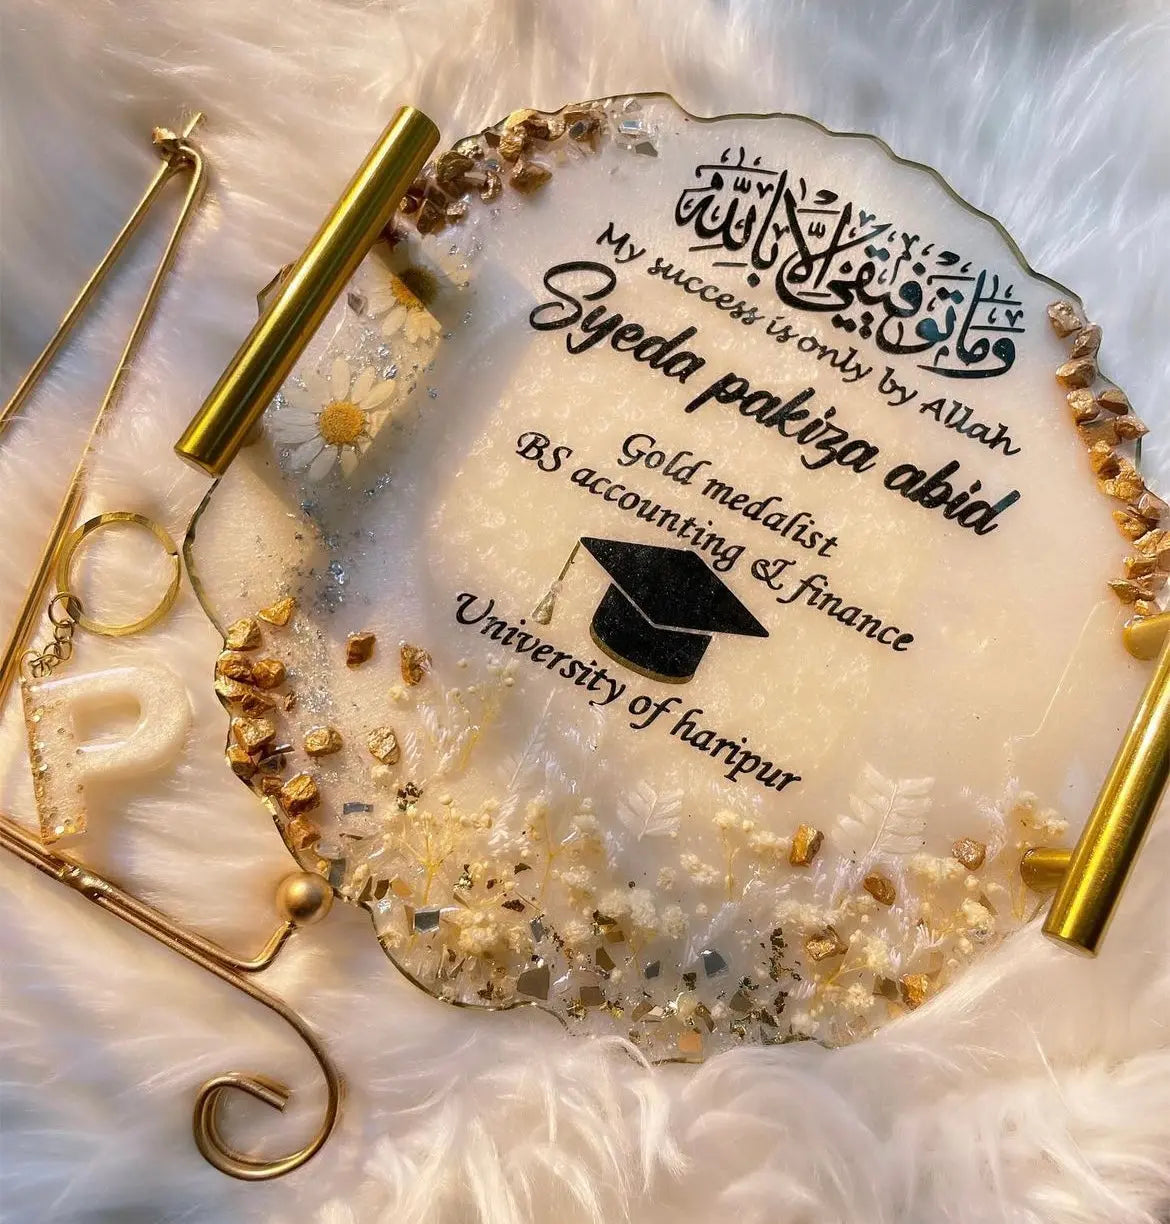 وما توفيقي إلا بالله
My success is only by Allah
Syeda pakiza abid
Gold medalist
BS accounting & finance
University of haripur
P